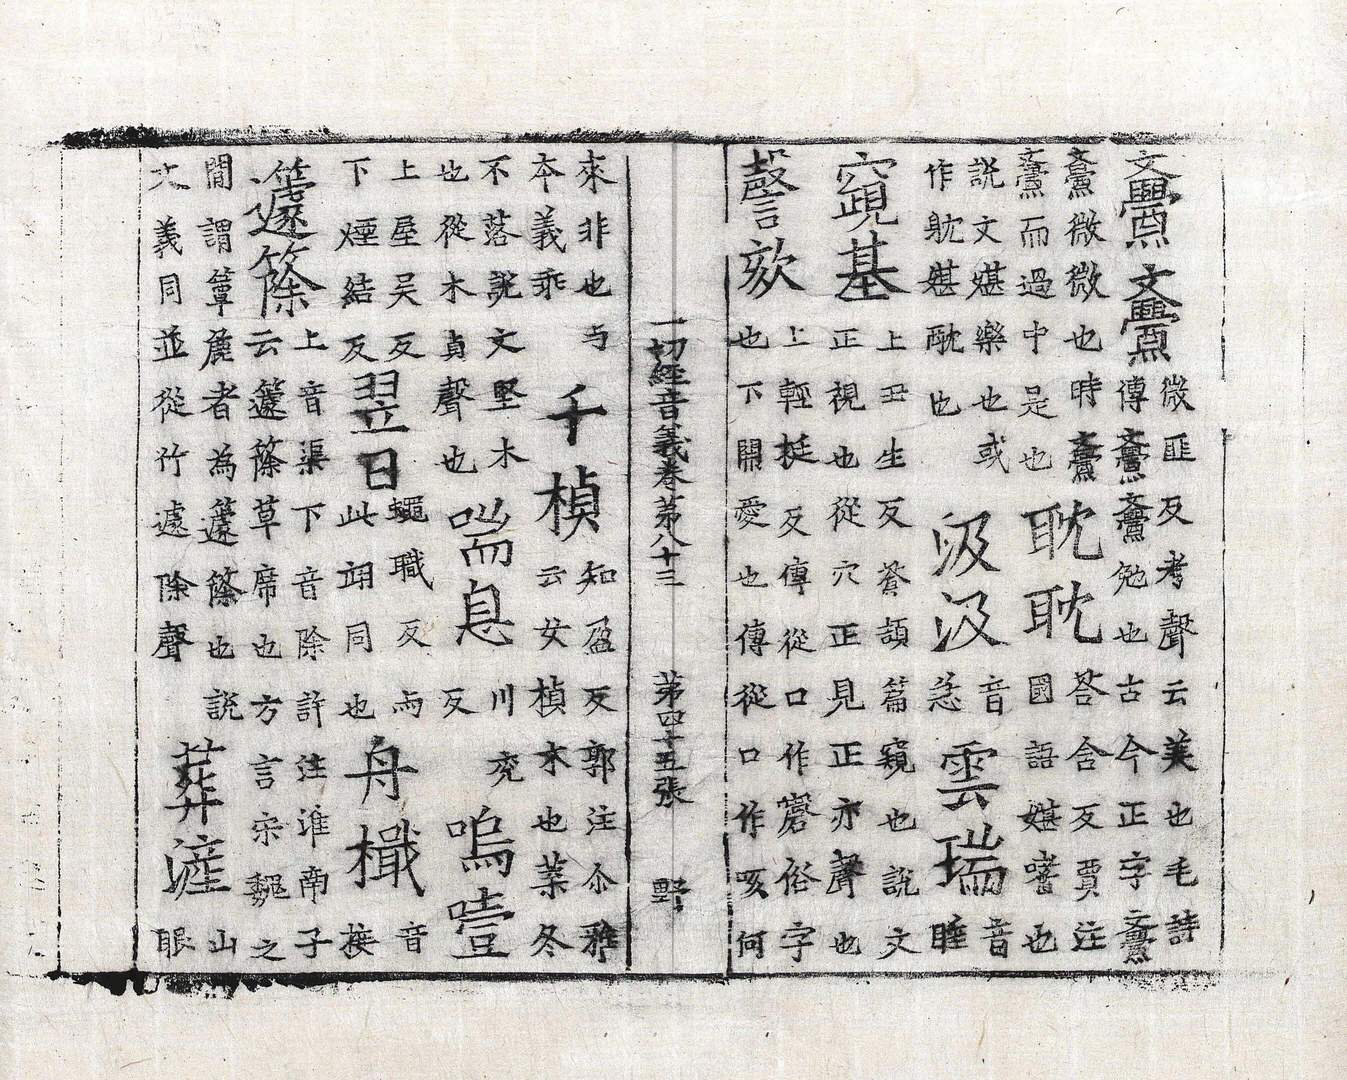 亹亹
微匪反考聲云美也毛詩
傳亹亹勉也古今正字亹
亹微微也時亹
亹而過中是也
耽耽
荅含反賈注
國語媅嗜也
說文媅樂也或
作躭媅酖也
汲汲
音
急
雲瑞
音
睡
窺基
上丑生反蒼頡篇窺也說文
正視也從穴正見正亦聲也
謦欬
上輕挺反傳從口作俗字
也下開愛也傳從口作咳何
一切經音義卷第八十三 第四十五張 野
來非也与
本義乖
千楨
知盈反郭注尒雅
云女楨木也葉冬
不落說文堅木
也從木貞聲也
喘息
川兖
反
嗚噎
上屋吴反
下煙結反
翌日
蠅職反兩
此翊同也
舟檝
音
接
籧篨
上音渠下音除許注淮南子
云籧篨草席也方言宋魏之
間謂簟麁者為籧篨也說
文義同並從竹遽除聲
葬滻
山
眼